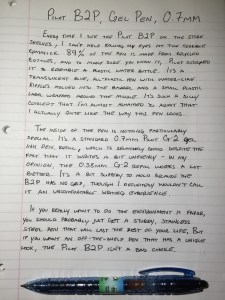 PILOT B2P, GEL PEN, 0.7MM
EVERY TIME I SEE THE PILOT B2P ON THE STORE
SHELVES, I CAN'T HELP ROLLING MY EYES AT THE SIDEBAR
GIMMICK. 89% OF THE PEN IS MADE FROM RECYCLED
BOTTLES, AND TO MAKE SURE YOU KNOW IT, PILOT DESIGNED
IT TO RESEMBLE A PLASTIC WATER BOTTLE. IT'S A
TRANSLUCENT BLUE, ALL-PLASTIC PEN WITH WATER-LIKE
RIPPLES MOLDED INTO THE BARREL AND A SMALL PLASTIC
LABEL WRAPPED AROUND THE MIDDLE. IT'S SUCH A SILLY
CONCEPT THAT I'M ALMOST ASHAMED TO ADMIT THAT
I ACTUALLY QUITE LIKE THE WAY THIS PEN LOOKS.
THE INSIDE OF THE PEN IS NOTHING PARTICULARLY
SPECIAL. IT'S A STANDARD 0.7MM PILOT G-2 GEL
INK PEN REFILL, WHICH IS GENERALLY GOOD DESPITE THE
FACT THAT IT WRITES A BIT UNEVENLY - IN MY
OPINION, THE 0.38MM G-2 REFILL WORKS A LOT
BETTER. IT'S A BIT SLIPPERY TO HOLD BECAUSE THE
B2P HAS NO GRIP, THOUGH I DEFINITELY WOULDN'T CALL
IT AN UNCOMFORTABLE WRITING EXPERIENCE.
IF YOU REALLY WANT TO DO THE ENVIRONMENT A FAVOR,
YOU SHOULD PROBABLY JUST GET A STURDY, STAINLESS
STEEL PEN THAT WILL LAST THE REST OF YOUR LIFE. BUT
IF YOU WANT AN OFF-THE-SHELF PEN THAT HAS A UNIQUE
LOOK, THE PILOT B2P ISN'T A BAD CHOICE.